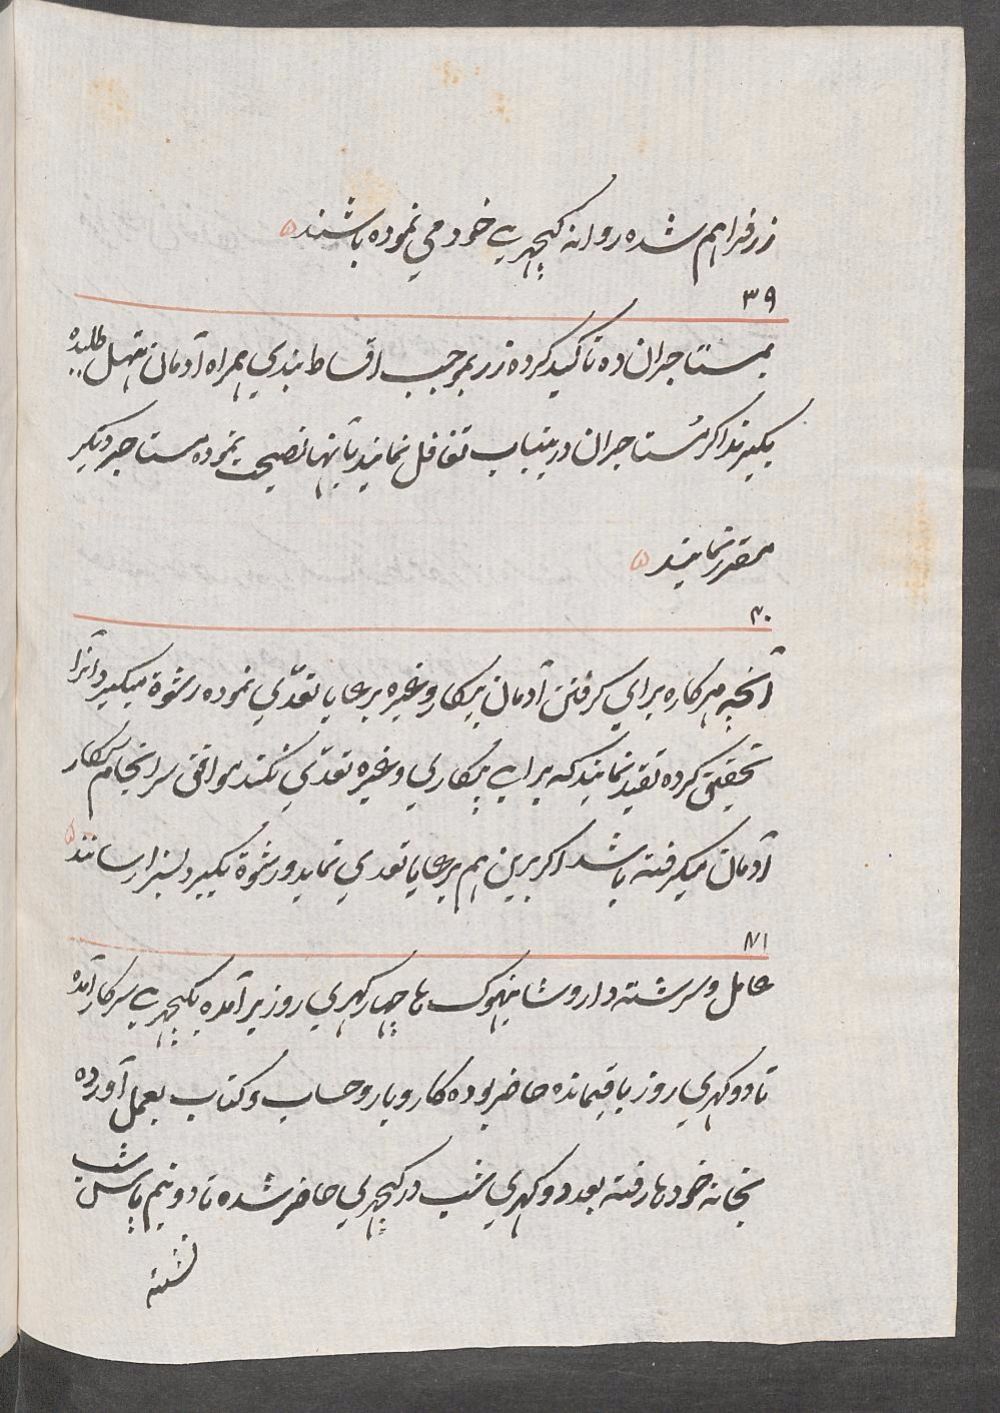 زر فراهم شده روانه کچهري خود مي نموده باشند ه
۳۹
بمستاجران ده تاکید کرده زر بموجب اقساط بندي همراه آدمان تهل طلبیده
بکیرند اکر مستاجران درینباب تغافل نمایند بآنها نصیحت نموده مستاجر دیکر
مقرر نمایند ه
۴۰
آنچه هرکاره براي کرفتن آدمان بیکار وغیره برعایا تعدّي نموده رشوة میکیرد آنرا
تحقیق کرده تقید نمایند که براي بیکاري وغیره تعدّي نکند موافق سرانجام سرکار
آدمان میکرفته باشد اکر برین هم برعایا تعدي نماید و رشوة بکیرد بسزا رسانند ه
۴۱
عامل وسرشته دار وشانبهوک ها چهار کهري روز برآمده بکچهري سرکار آمده
تا دو کهري روز باقیمانده حاضر بوده کار و بار وحساب وکتاب بعمل آورده
بخانه خودها رفته بعد دو کهري شب در کچهري حاضر شده تا دو نیم پاس شب
نشسته